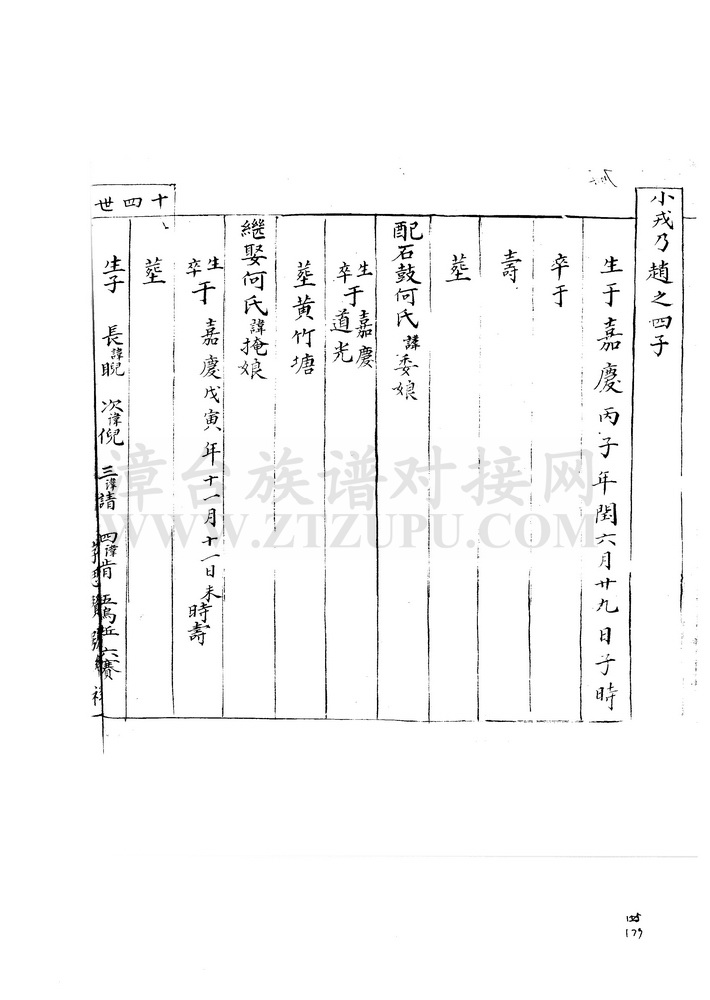 小戎乃趙之四子
生于嘉慶丙子年閏六月廿九日子時
卒于
壽
塟
配石鼓何氏諱委娘
生卒于嘉慶道光
塟黄竹塘
繼娶何氏諱掩娘
生卒于嘉慶戊寅年十一月十一日未時壽
塟
十四世
生子 長諱睨 次諱倪 三諱請 四諱肯 五 六賽
漳台族谱对接网
WWW.ZTZUPU.COM
179